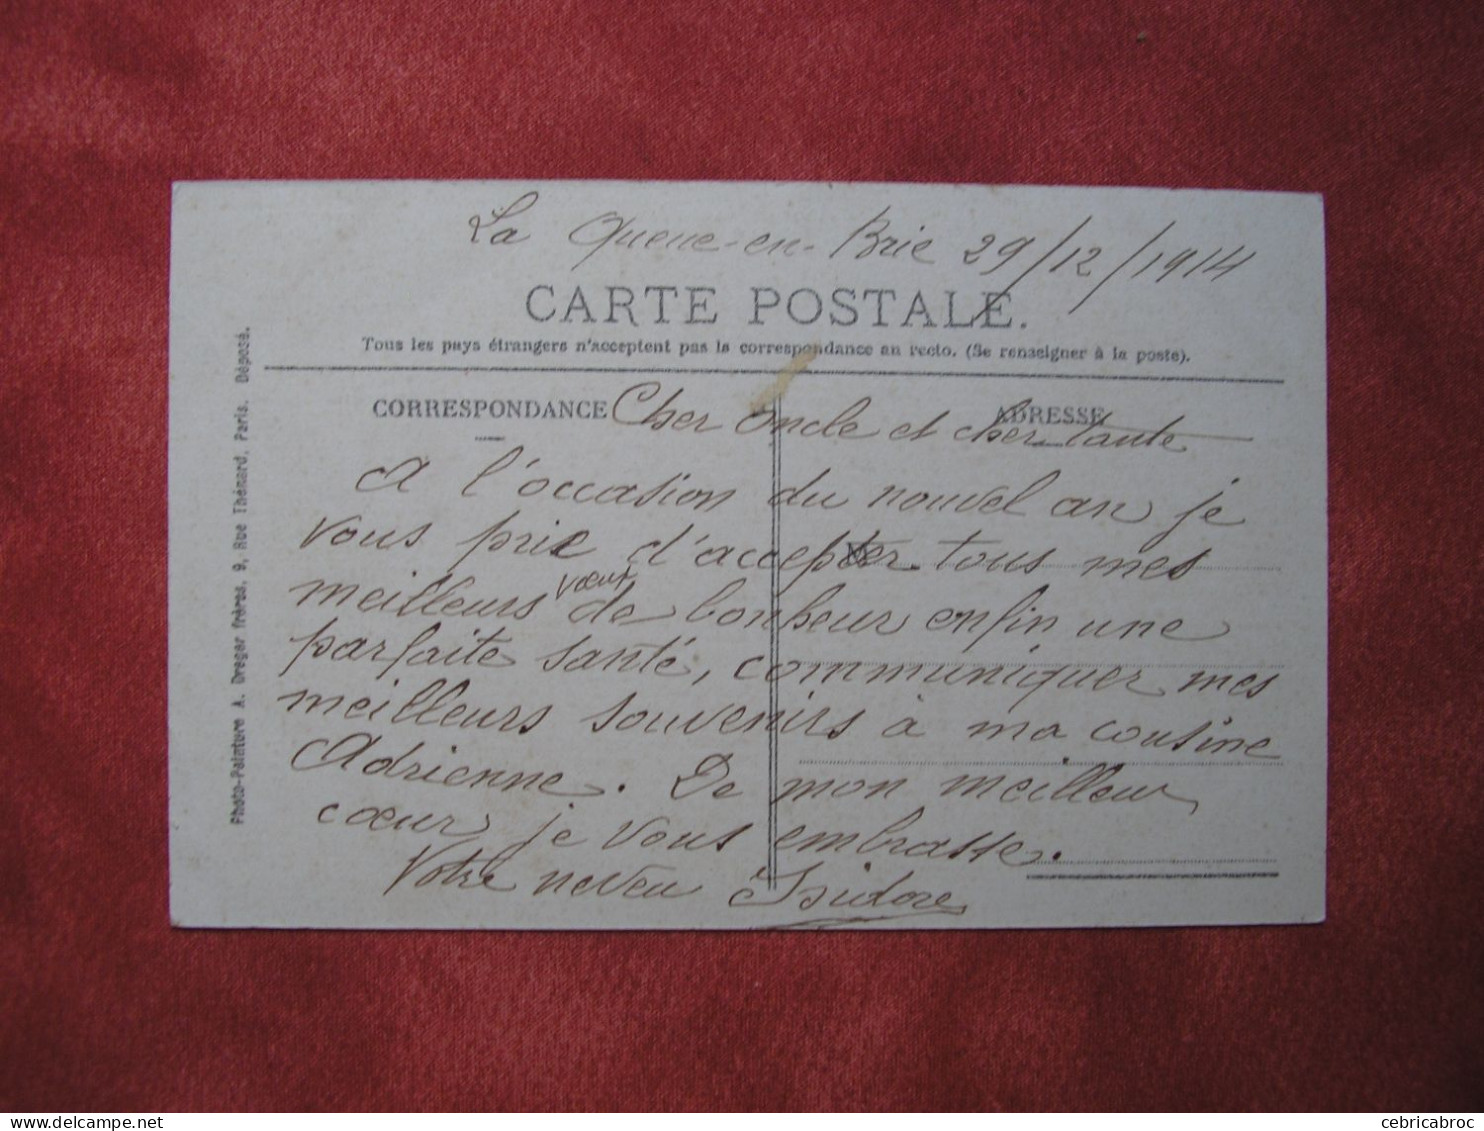 La Queue-en-Brie 29/12/1914
CARTE POSTALE.
Tous les pays étrangers n'acceptent pas la correspondance au recto. (Se renseigner à la poste).
CORRESPONDANCE
ADRESSE
Cher Oncle et cher tante
A l'occasion du nouvel an je
vous prie d'accepter tous mes
meilleurs vœux de bonheur enfin une
parfaite santé, communiquer mes
meilleurs souvenirs à ma cousine
Adrienne. De mon meilleur
cœur je vous embrasse.
Votre neveu Isidore
Photo-Peinture A. Dreger frères, 9, Rue Thénard, Paris. Déposé.
cebricabroc